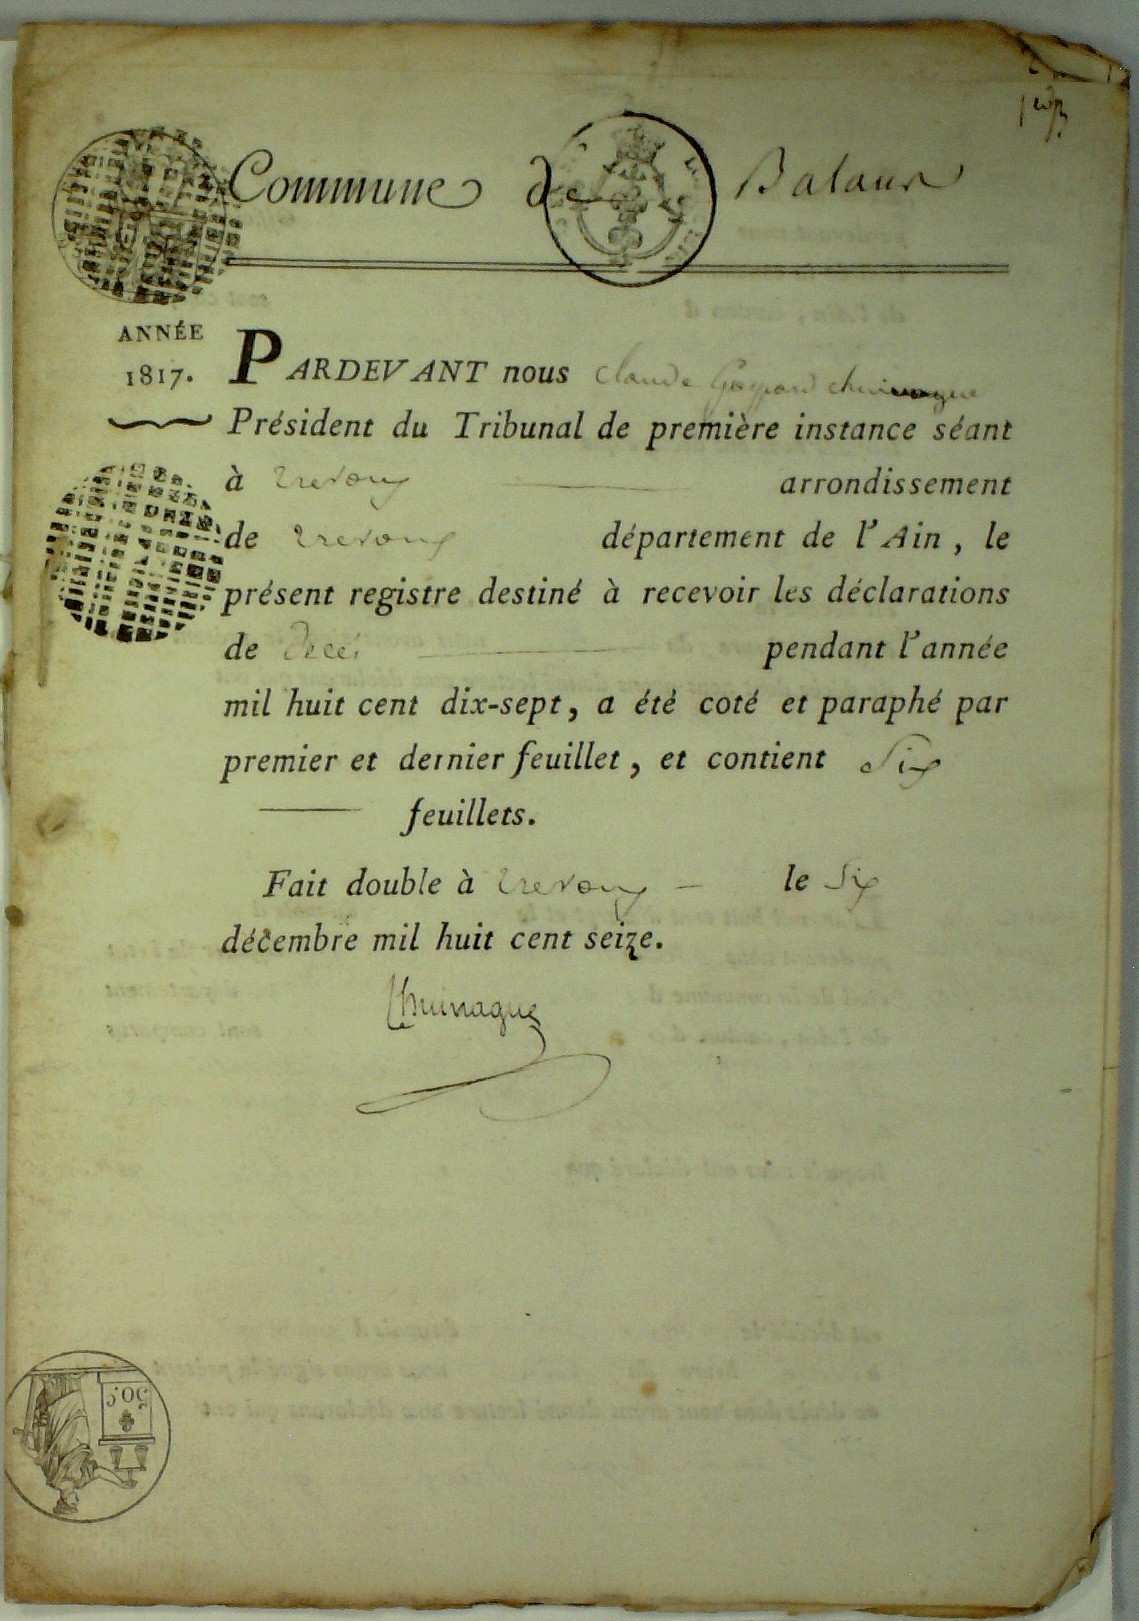 Commune de Balaun
ANNÉE
1817.
PARDEVANT nous Claude Gaspard Chuinague
Président du Tribunal de première instance séant
à Trevoux arrondissement
de Trevoux département de l'Ain, le
présent registre destiné à recevoir les déclarations
de Décès pendant l'année
mil huit cent dix-sept, a été coté et paraphé par
premier et dernier feuillet, et contient Six
feuillets.
Fait double à Trevoux le Six
décembre mil huit cent seize.
Chuinague
50.C